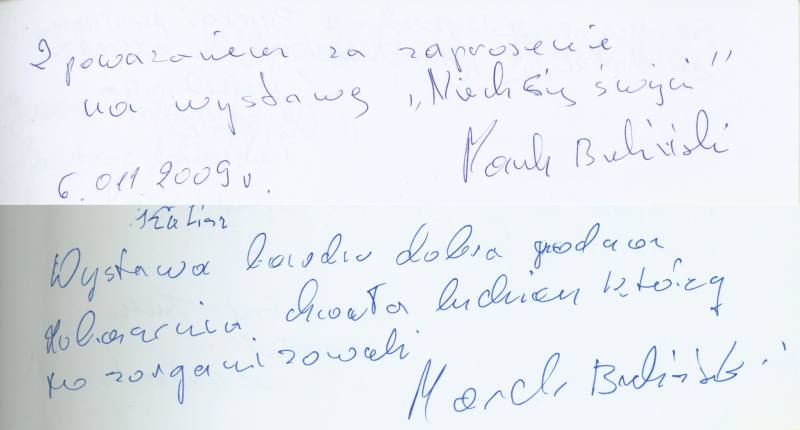 Z poważaniem za zaproszenie
na wystawę „Niech się święci"
Marek
6.011.2009 r.
Wystawa bardzo dobra godna
zobaczenia chwała ludziom którzy
to zorganizowali
Marek